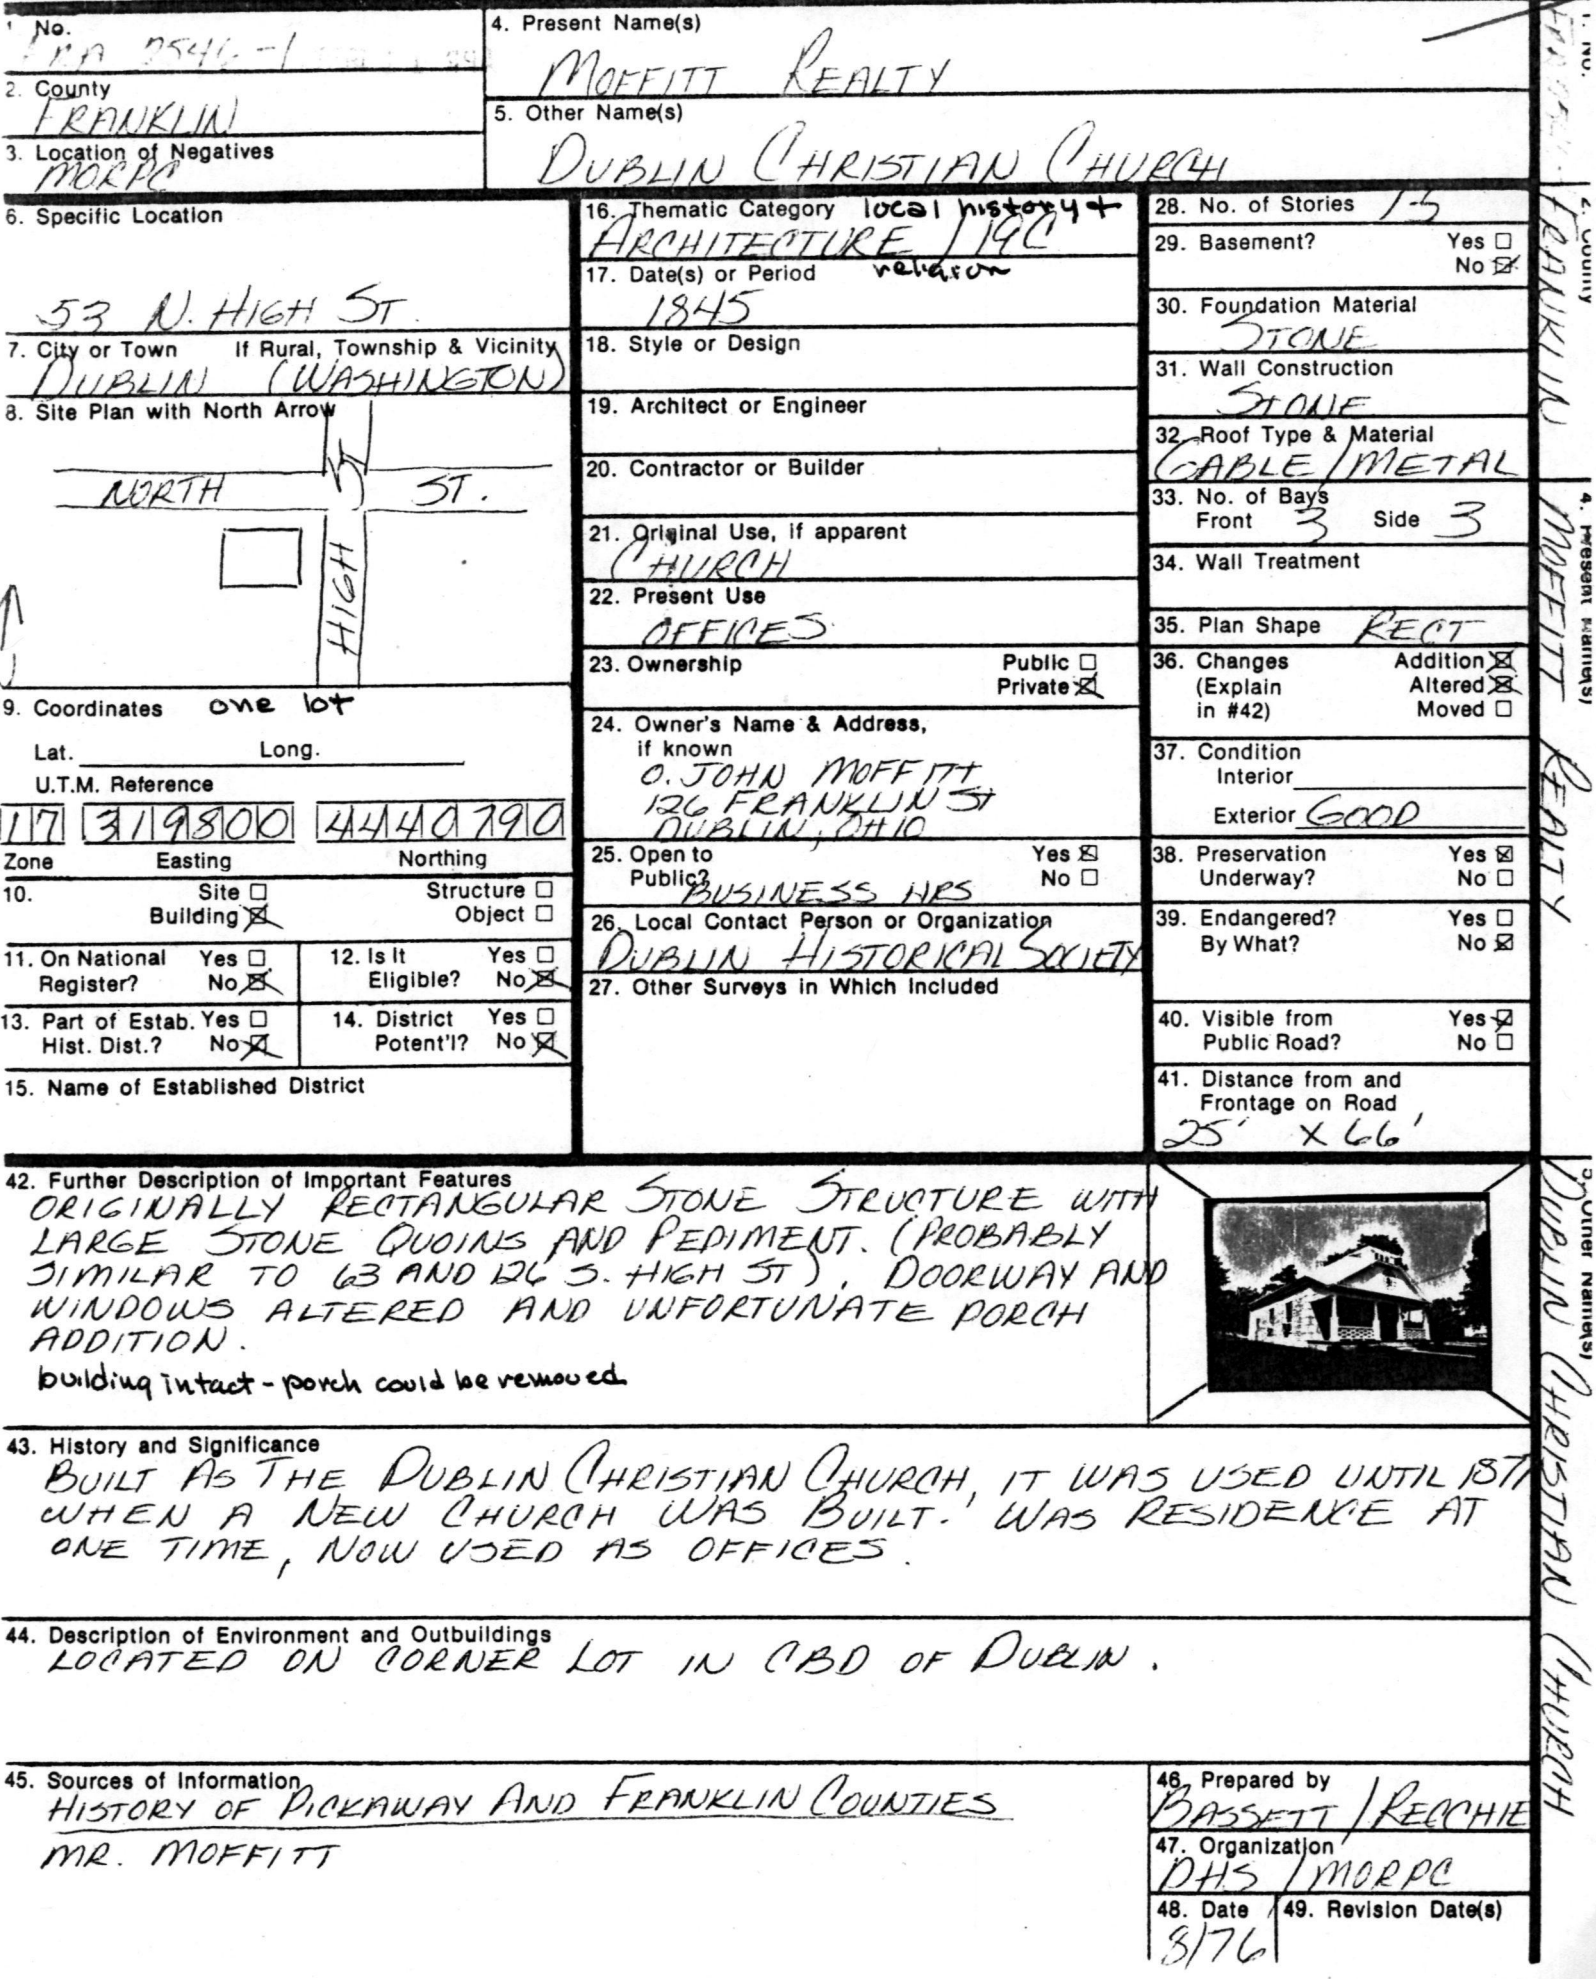 1. No.
FRA 2546-1
2. County
FRANKLIN
3. Location of Negatives
MORPC
4. Present Name(s)
MOFFITT REALTY
5. Other Name(s)
DUBLIN CHRISTIAN CHURCH
6. Specific Location
53 N. HIGH ST.
7. City or Town If Rural, Township & Vicinity
DUBLIN (WASHINGTON)
8. Site Plan with North Arrow
NORTH ST.
HIGH ST
9. Coordinates one lot
Lat. Long.
U.T.M. Reference
17 319800 4440790
Zone Easting Northing
10. Site ☐ Structure ☐
Building ☒ Object ☐
11. On National Yes ☐
Register? No ☒
12. Is It Yes ☐
Eligible? No ☒
13. Part of Estab. Yes ☐
Hist. Dist.? No ☒
14. District Yes ☐
Potent'l? No ☒
15. Name of Established District
16. Thematic Category local history +
ARCHITECTURE / 19C
religion
17. Date(s) or Period
1845
18. Style or Design
19. Architect or Engineer
20. Contractor or Builder
21. Original Use, if apparent
CHURCH
22. Present Use
OFFICES
23. Ownership Public ☐
Private ☒
24. Owner's Name & Address,
if known
O. JOHN MOFFITT
126 FRANKLIN ST
DUBLIN, OHIO
25. Open to Yes ☒
Public? No ☐
BUSINESS HRS
26. Local Contact Person or Organization
DUBLIN HISTORICAL SOCIETY
27. Other Surveys in Which Included
28. No. of Stories 1-5
29. Basement? Yes ☐
No ☒
30. Foundation Material
STONE
31. Wall Construction
STONE
32. Roof Type & Material
GABLE / METAL
33. No. of Bays
Front 3 Side 3
34. Wall Treatment
35. Plan Shape RECT
36. Changes Addition ☒
(Explain Altered ☒
in #42) Moved ☐
37. Condition
Interior
Exterior GOOD
38. Preservation Yes ☒
Underway? No ☐
39. Endangered? Yes ☐
By What? No ☒
40. Visible from Yes ☒
Public Road? No ☐
41. Distance from and
Frontage on Road
25' X 66'
42. Further Description of Important Features
ORIGINALLY RECTANGULAR STONE STRUCTURE WITH
LARGE STONE QUOINS AND PEDIMENT. (PROBABLY
SIMILAR TO 63 AND 126 S. HIGH ST). DOORWAY AND
WINDOWS ALTERED AND UNFORTUNATE PORCH
ADDITION.
building intact - porch could be removed
43. History and Significance
BUILT AS THE DUBLIN CHRISTIAN CHURCH, IT WAS USED UNTIL 1877
WHEN A NEW CHURCH WAS BUILT. WAS RESIDENCE AT
ONE TIME, NOW USED AS OFFICES.
44. Description of Environment and Outbuildings
LOCATED ON CORNER LOT IN CBD OF DUBLIN.
45. Sources of Information
HISTORY OF PICKAWAY AND FRANKLIN COUNTIES
MR. MOFFITT
46. Prepared by
BASSETT / RECCHIE
47. Organization
DHS / MORPC
48. Date
8/76
49. Revision Date(s)
1. No.
2. County
FRANKLIN
4. Present Name(s)
MOFFITT REALTY
5. Other Name(s)
DUBLIN CHRISTIAN CHURCH